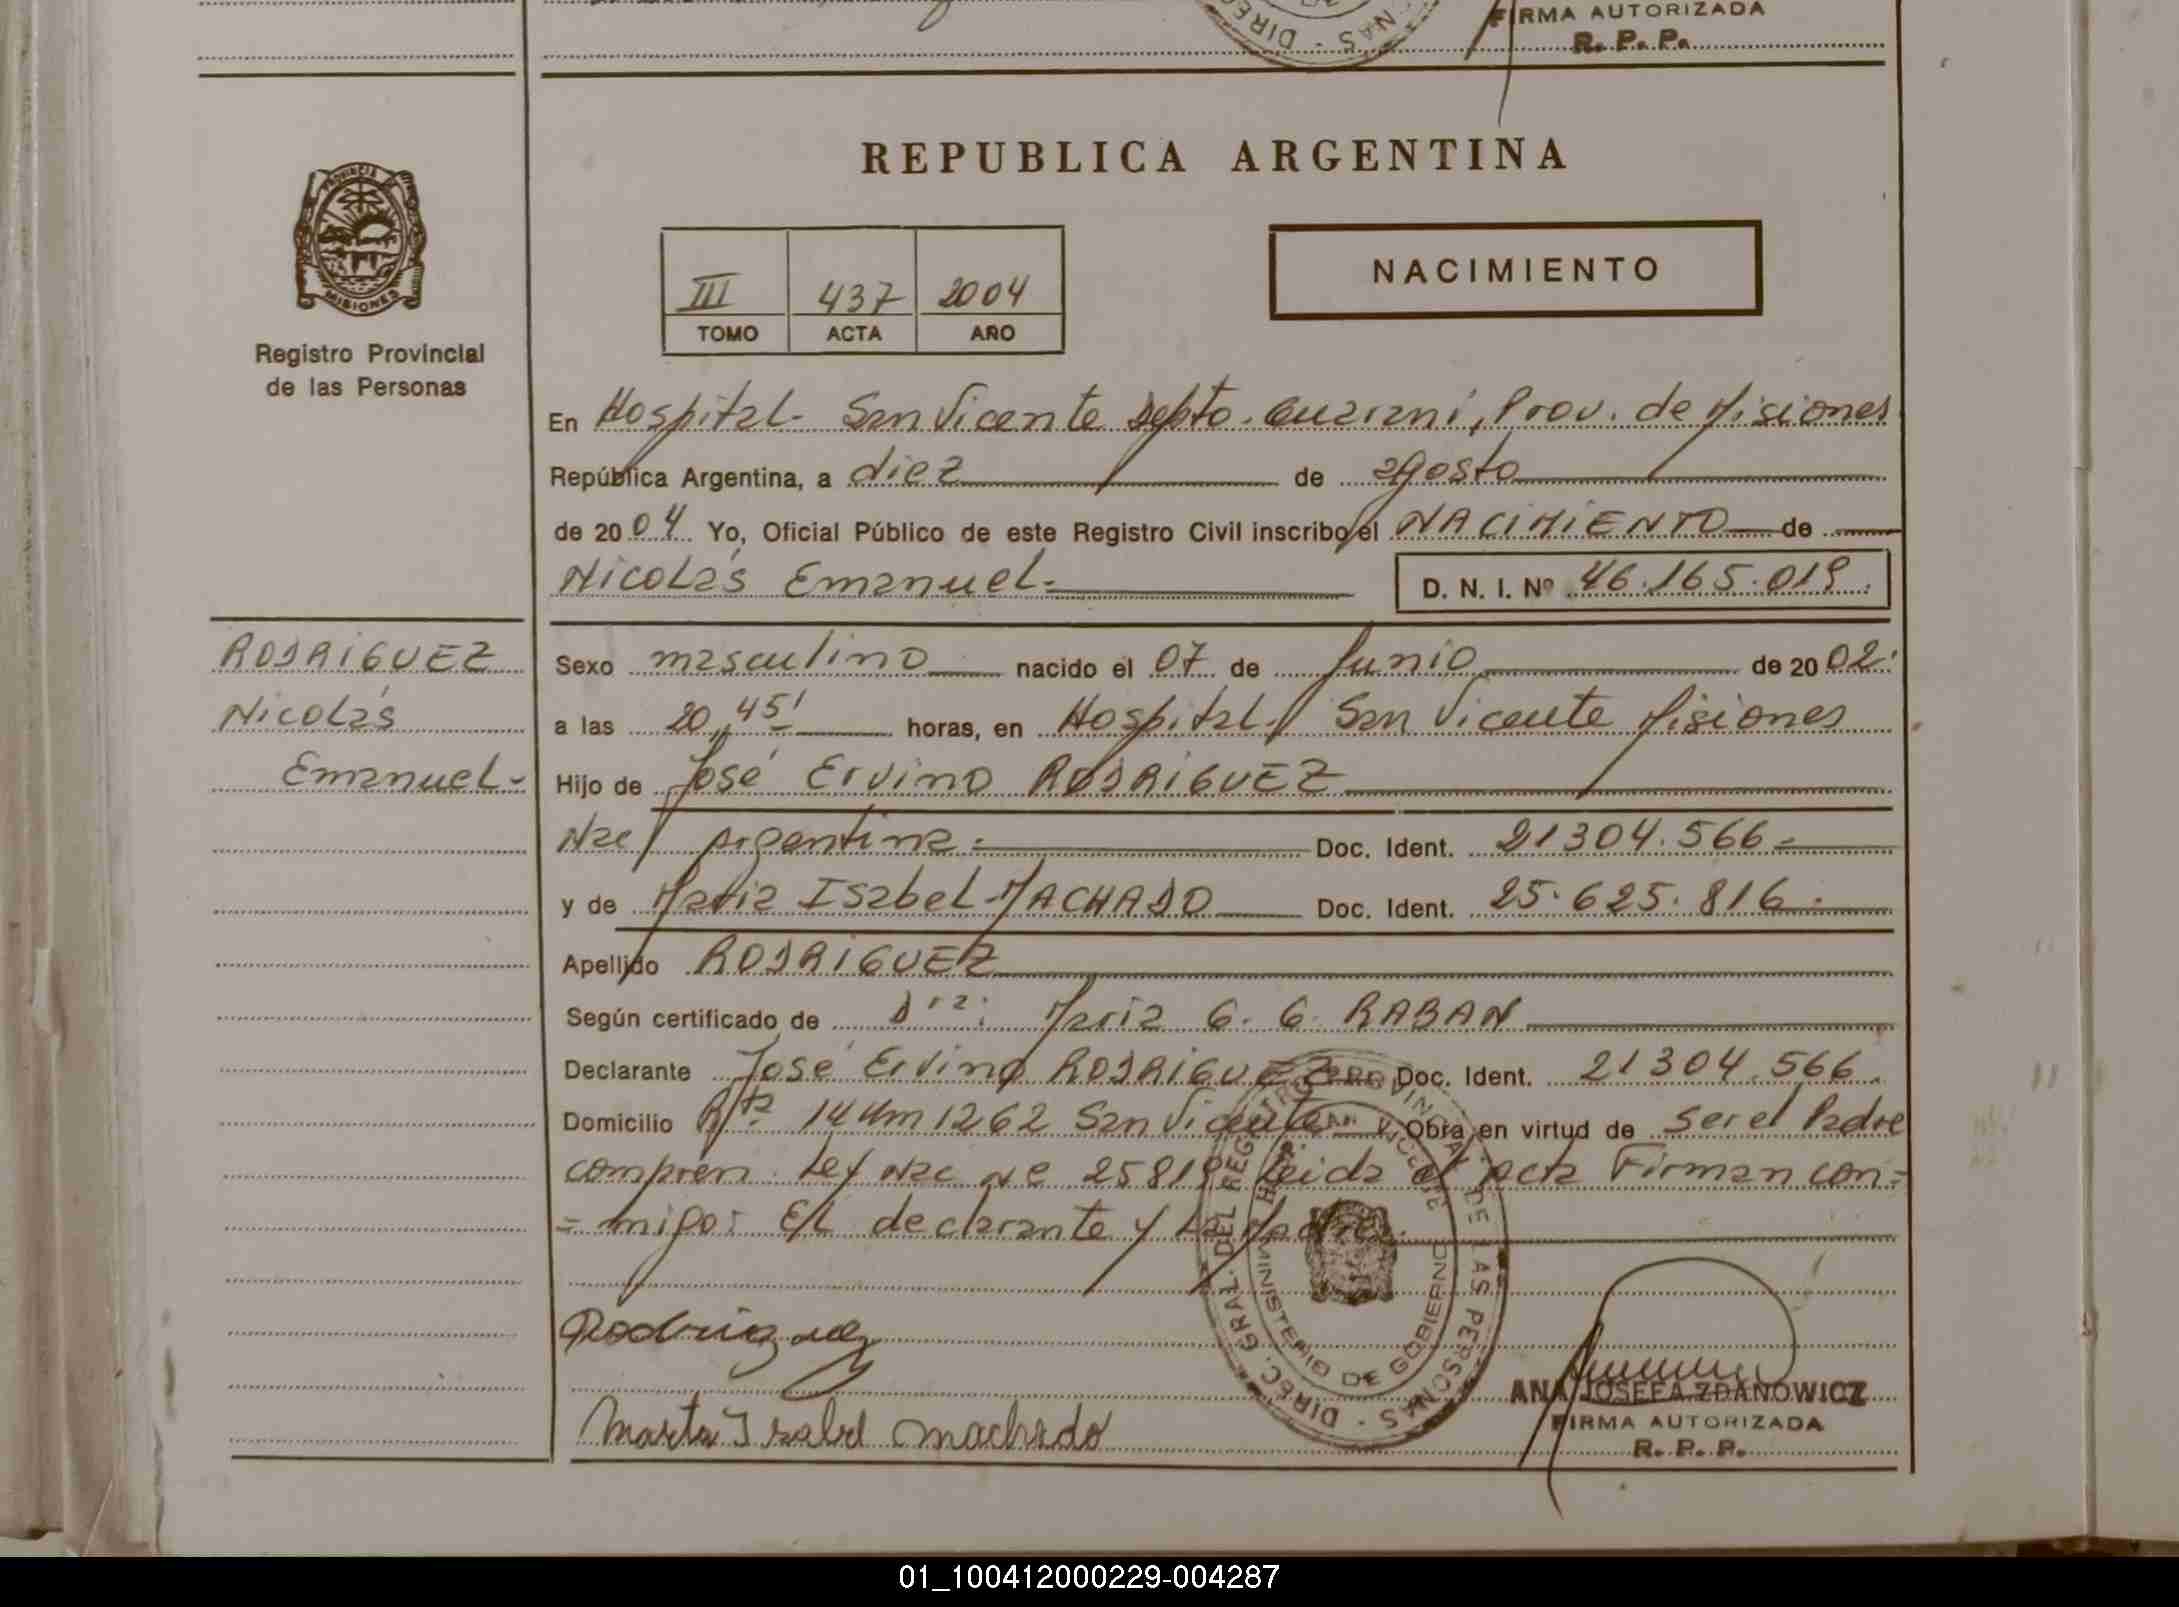 FIRMA AUTORIZADA
R. P. P.
REPUBLICA ARGENTINA
PROVINCIA DE
MISIONES
Registro Provincial
de las Personas
III 437 2004
TOMO ACTA AÑO
NACIMIENTO
En Hospital - San Vicente Depto. Guarani, Prov. de Misiones
República Argentina, a diez de agosto
de 2004 Yo, Oficial Público de este Registro Civil inscribo el NACIMIENTO de
Nicolás Emanuel.
D. N. I. Nº 46.165.019.
RODRIGUEZ
Nicolás
Emanuel-
Sexo masculino nacido el 07 de Junio de 2002.
a las 20,45' horas, en Hospital / San Vicente Misiones
Hijo de José Ervino RODRIGUEZ
Nac/ argentina.- Doc. Ident. 21304.566-
y de Maria Isabel MACHADO Doc. Ident. 25.625.816.-
Apellido RODRIGUEZ
Según certificado de Dra: Maria G. G. RABAN
Declarante José Ervino RODRIGUEZ Doc. Ident. 21304.566.
Domicilio Rta 14 Km 1262 San Vicente Obra en virtud de ser el Padre
compren. Ley Nac Ne 25819 Leida el acta Firman con=
=migo: El declarante y La Madre.
Rodriguez
Marta Isabel machado
DIREC. GRAL. DEL REGISTRO PROVINCIAL DE LAS PERSONAS
MINISTERIO DE GOBIERNO
ANA JOSEFA ZDANOWICZ
FIRMA AUTORIZADA
R. P. P.
01_100412000229-004287